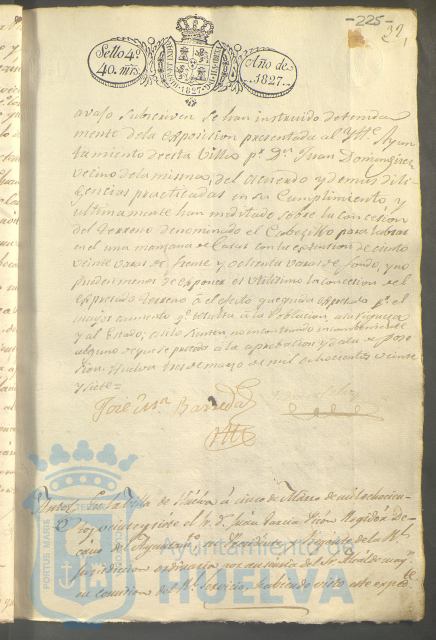 -225-
32,
Sello 4º
40. mrs
Año de
1827.
avajo subscriven se han instruido detenida
mente de la exposicion presentada al Ytte. Ayun
tamiento de esta Villa pr. Dn. Juan Dominguez
vecino de la misma, del acuerdo y demas dili
gencias practicadas en su cumplimiento, y
ultimamente han meditado sobre la concesion
del terreno denominado el Cabezillo para labrar
en el una manzana de Casas con la extension de ciento
veinte varas de frente y ochenta varas de fondo, y no
pueden menos de exponer es utilisima la concesion del
expresado terreno á el efecto que queda expresado pr. el
mayor aumento qe. resulta á la Poblacion, á la riqueza
y al Estado; asi lo sienten no encontrando inconveniente
alguno
Huelva tres de marzo de mil ochocientos veinte
y siete=
José Barreda
Autos En la Villa de Huelva á cinco de Marzo de mil ochocien-
tos veinte y siete el Sr. D. Juan Garcia Regidor De-
cano del Ayuntamto. su Presidente y Regente de la Rl.
Jurisdicion ordinaria por ausencia del Sr. Alcalde mayr.
en comision del Rl. servicio, habiendo visto este expedte.
PORTUS MARIS
Ayuntamiento de
HUELVA